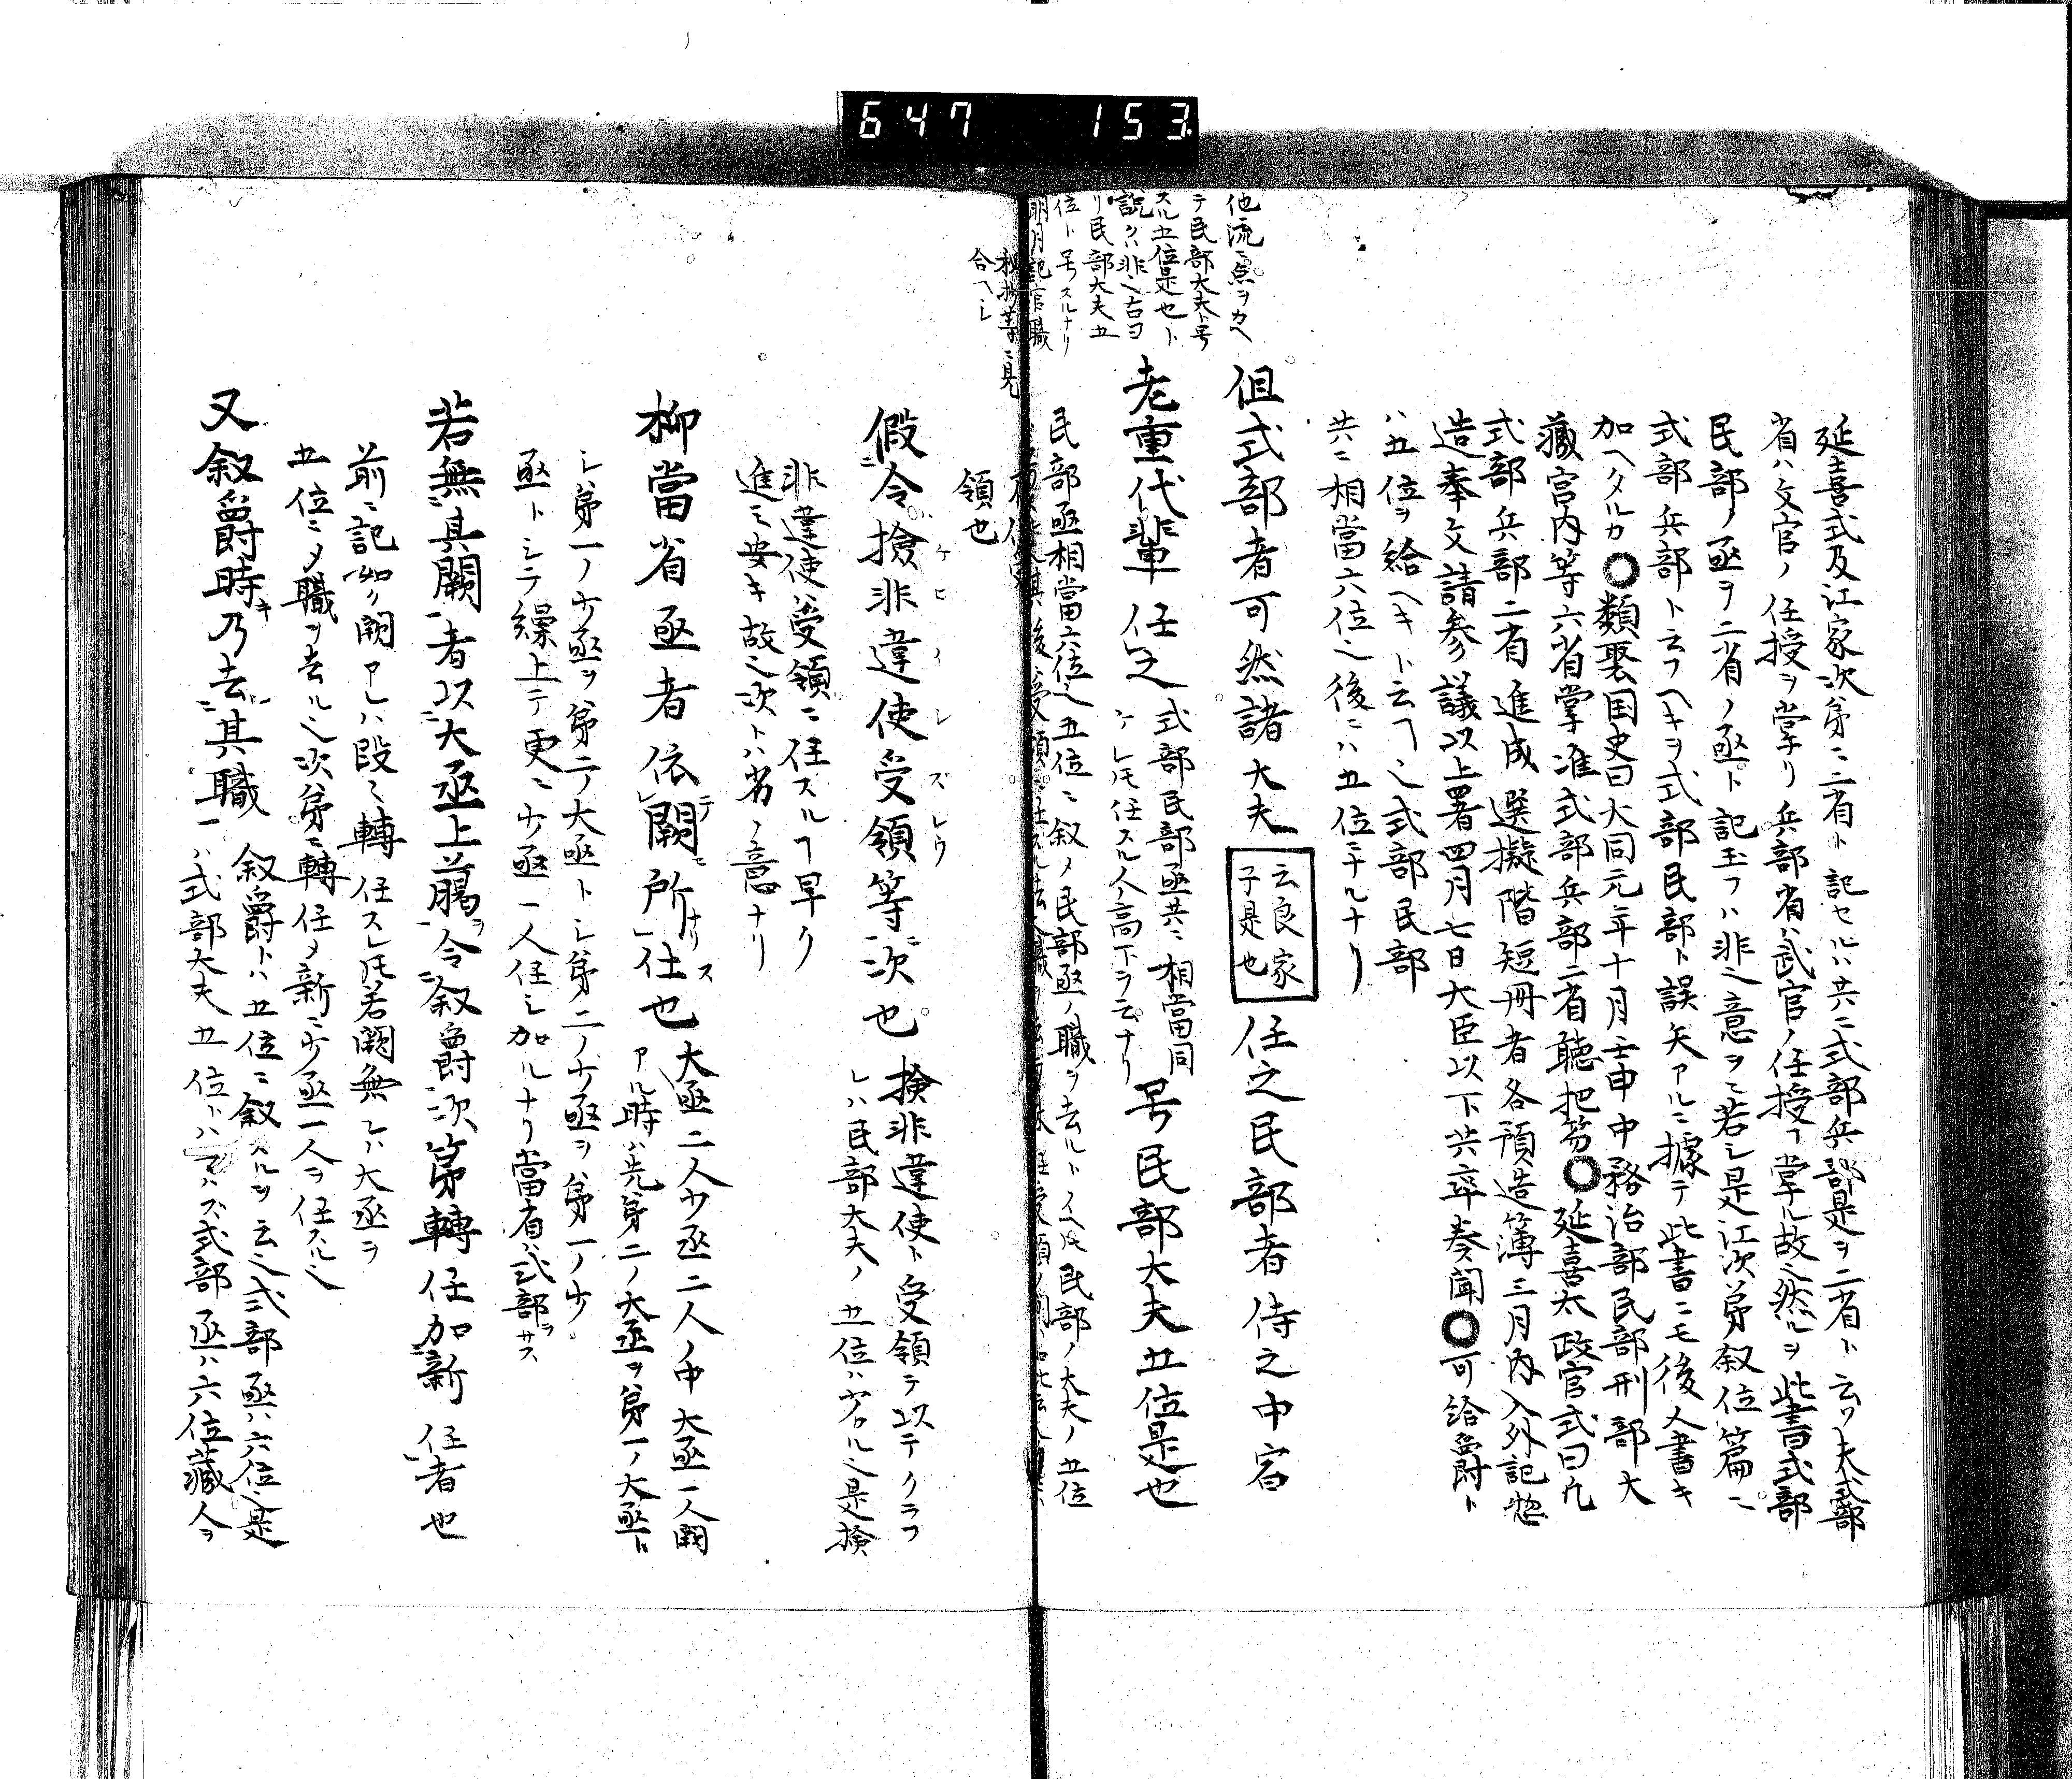 647 153
延喜式及江家次第ニ二省ト記セルハ共ニ式部兵部是ヲ二省ト云リ夫式部
省ハ文官ノ任授ヲ掌リ兵部省ハ武官ノ任授ヿ掌ル故ニ然ルヲ此書式部
民部ノ亟ヲ二省ノ亟ト記玉フハ非之意ヲニ若シ是江次第叙位篇ニ
式部兵部ト云フヘキヲ式部民部ト誤矢アルニ據テ此書ニモ後人書キ
加ヘタルカ〇類聚国史曰大同元年十月壬申中務治部民部刑部大
藏宮内等六省掌准式部兵部二省聴把笏〇延喜太政官式曰凡
式部兵部二省進成選擬階短冊者各預造簿三月内入外記惣
造奉文請参議以上署四月七日大臣以下共率奏聞〇可給爵ト
ハ五位ヲ給ヘキト云ヿ之式部民部
共ニ相當六位之後ニハ五位ニナルナリ
他流点ヲカヘ
テ民部大夫ト号
スル五位是也ト
説クハ非之古ヨ
リ民部大夫五
位ト号スルナリ
明月記官職
秘抄等ニ見
合ヘシ
但式部者可然諸大夫
云良家
子是也
任之民部者侍之中宿
老重代輩任之
式部民部亟共ニ相當同
ケレ圧任スル人ノ高下ヲ云ナリ
号民部大夫五位是也
民部亟相當六位之五位ニ叙メ民部亟ノ職ヲ去ルトイヘ圧民部ノ大夫ノ五位
領也
假令撿非違使受領等次也
ケヒイレスレウ
撿非違使ト受領テ以テクラフ
レハ民部大夫ノ五位ハ劣ル之是撿
非違使ハ受領ニ任スルヿ早ク
進ミ安キ故之次トハ劣ノ意ナリ
柳當省亟者依闕所仕也
大亟二人少亟二人ノ中大亟一人闕
アル時ハ先第二ノ大亟ヲ第一ノ大亟ト
シ第一ノ少亟ヲ第二ノ大亟トシ第二ノ少亟ヲ第一ノ少
亟トシテ繰上テ更ニ少亟一人任シ加ルナリ當省ハ式部ヲサス
若無其闕者以大丞上﨟令叙爵次第轉任加新任者也
前ニ記如ク闕アレハ段々轉任スレ圧若闕無レハ大丞ヲ
五位ニメ職ヲ去ル之次第ニ轉任メ新ニ少亟一人ヲ任スル之
又叙爵時乃去其職
叙爵トハ五位ニ叙スルヲ云之式部亟ハ六位之是
ハ式部大夫五位トハ云ハズ式部亟ハ六位藏人ヲ